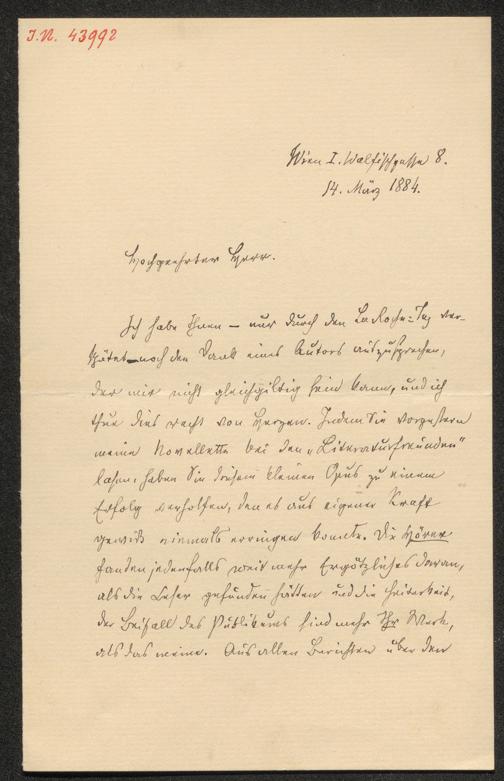 J.N. 43992
Wien I. Walfischgasse 8.
14. März 1884.
Hochgeehrter Herr.
Ich habe Ihnen – nur durch den La Roche-Tag ver-
spätet – noch den Dank eines Autors auszusprechen,
der mir nicht gleichgiltig sein kann, und ich
thue dies recht von Herzen. Indem Sie vorgestern
meine Novellette bei den „Literaturfreunden"
lasen, haben Sie diesem kleinen Opus zu einem
Erfolg verholfen, den es aus eigener Kraft
gewiß niemals erringen konnte. Die Hörer
fanden jedenfalls weit mehr Ergötzliches daran,
als die Leser gefunden hätten und die Heiterkeit,
der Beifall des Publikums sind mehr Ihr Werk,
als das meine. Aus allen Berichten über den